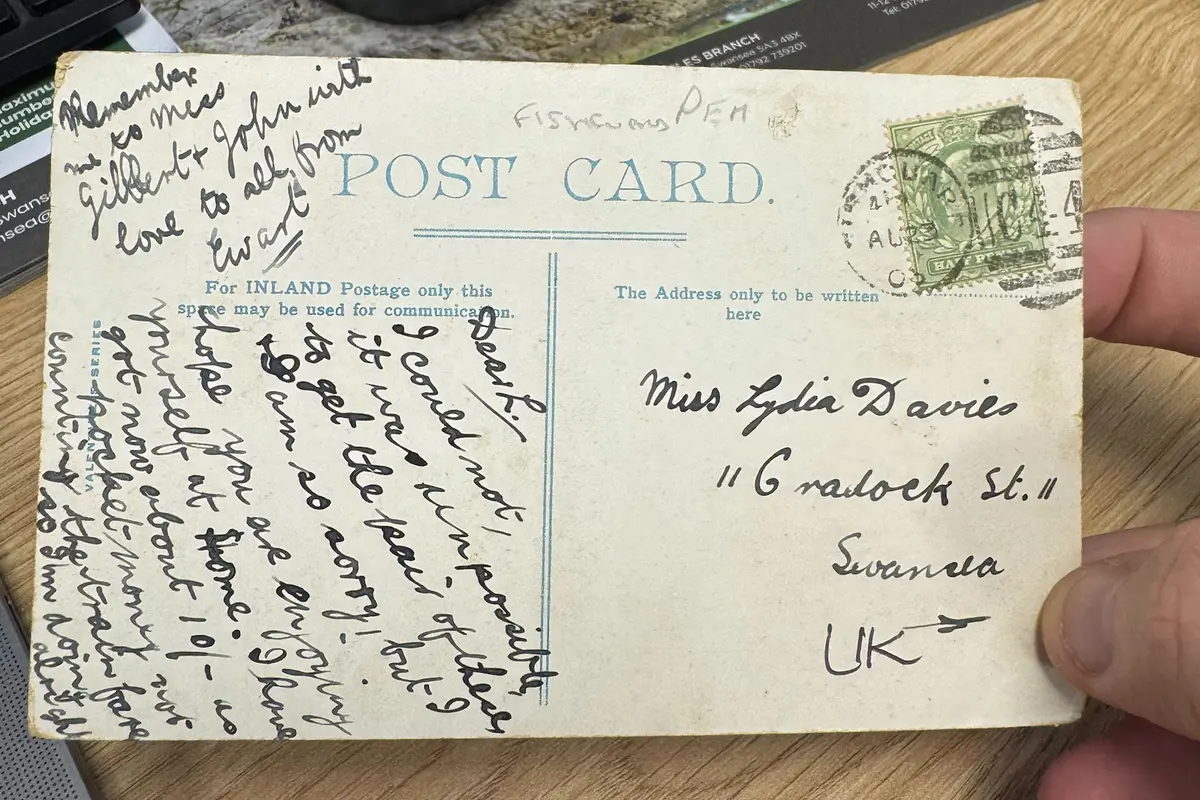 Remember
me to Miss
Gilbert + John with
love to all, from
Ewart
FISHGUARD PEM
POST CARD.
FISHGUARD
AU 3
HALF PENNY
For INLAND Postage only this
space may be used for communication.
The Address only to be written
here
VALENTINE'S SERIES
Dear L,
I could not,
it was unpossible,
to get the pair of these
but I
I am so sorry!
hope you are enjoying
yourself at Home. I have
got now about 10/- as
pocket-money not
counting the train fare
so I'm doing alright
Miss Lydia Davies
" Cradock St."
Swansea
UK
LES BRANCH
Swansea SA3 4BX
01792 739201
11-12
Tel: 01792